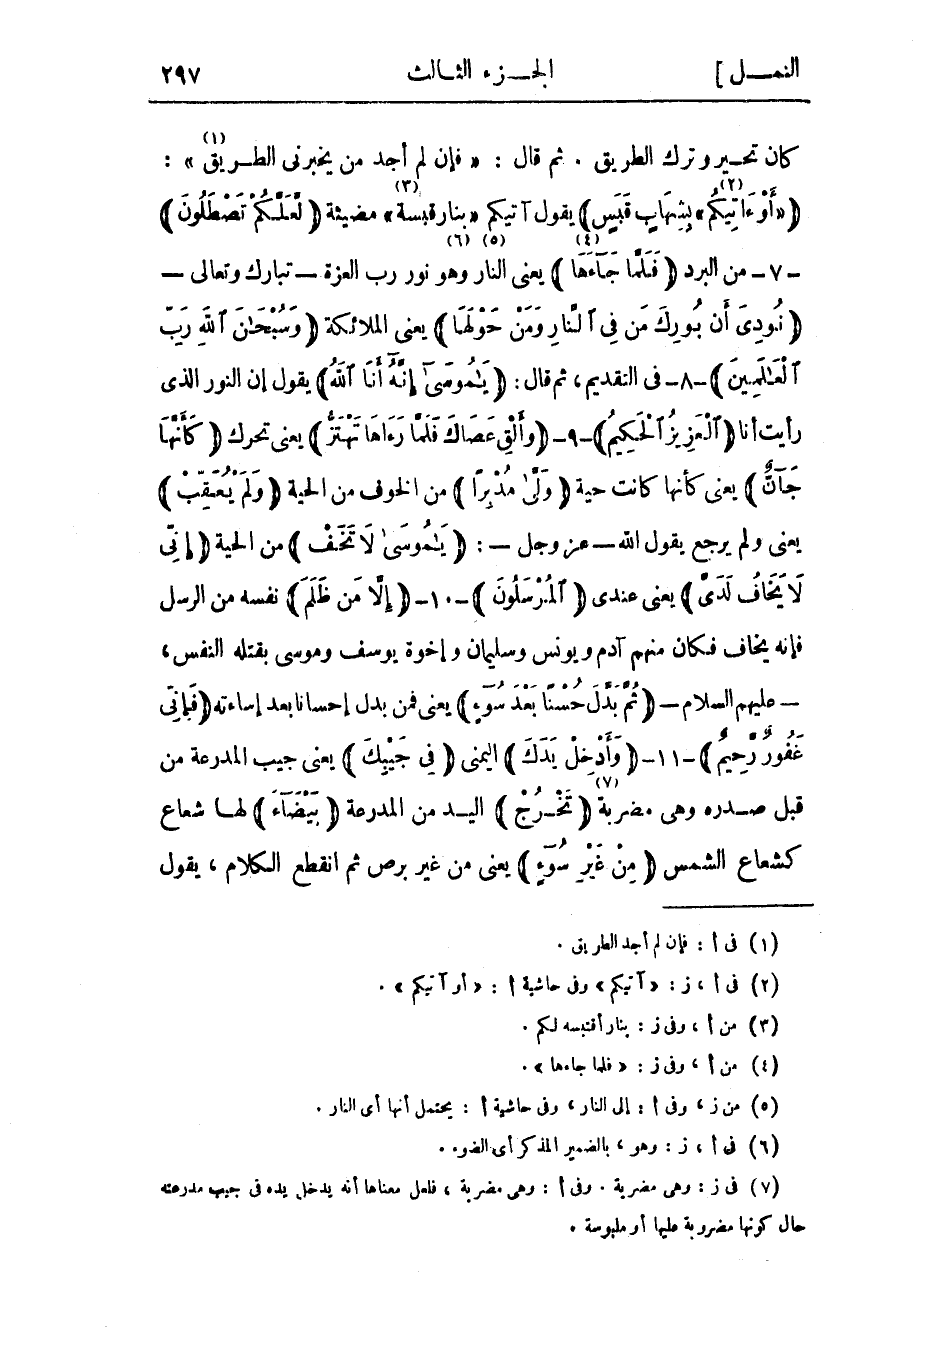 النمـــل ] الجـــزء الثـالث ٢٩٧
كان تحـير وترك الطريق . ثم قال : « فإن لم أجد من يخبرنى الطـريق (١) » :
﴿ «أَوْ ءَاتِيكُم (٢)» بِشِهَابٍ قَبَسٍ ﴾ يقول آتيكم «بنار قبسة (٣)» مضيئة ﴿ لَّعَلَّكُمْ تَصْطَلُونَ ﴾
-٧- من البرد ﴿ فَلَمَّا جَآءَهَا (٤) ﴾ يعنى النار (٥) وهو (٦) نور رب العزة — تبارك وتعالى —
﴿ نُودِىَ أَن بُورِكَ مَن فِى ٱلنَّارِ وَمَنْ حَوْلَهَا ﴾ يعنى الملائكة ﴿ وَسُبْحَٰنَ ٱللَّهِ رَبِّ
ٱلْعَٰلَمِينَ ﴾ -٨- فى التقديم ، ثم قال : ﴿ يَٰمُوسَىٰٓ إِنَّهُۥٓ أَنَا ٱللَّهُ ﴾ يقول إن النور الذى
رأيت أنا ﴿ ٱلْعَزِيزُ ٱلْحَكِيمُ ﴾ -٩- ﴿ وَأَلْقِ عَصَاكَ فَلَمَّا رَءَاهَا تَهْتَزُّ ﴾ يعنى تحرك ﴿ كَأَنَّهَا
جَآنٌّ ﴾ يعنى كأنها كانت حية ﴿ وَلَّىٰ مُدْبِرًا ﴾ من الخوف من الحية ﴿ وَلَمْ يُعَقِّبْ ﴾
يعنى ولم يرجع يقول الله — عز وجل — : ﴿ يَٰمُوسَىٰ لَا تَخَفْ ﴾ من الحية ﴿ إِنِّى
لَا يَخَافُ لَدَىَّ ﴾ يعنى عندى ﴿ ٱلْمُرْسَلُونَ ﴾ -١٠- ﴿ إِلَّا مَن ظَلَمَ ﴾ نفسه من الرسل
فإنه يخاف فكان منهم آدم ويونس وسليمان وإخوة يوسف وموسى بقتله النفس ،
— عليهم السلام — ﴿ ثُمَّ بَدَّلَ حُسْنًا بَعْدَ سُوٓءٍ ﴾ يعنى فمن بدل إحسانا بعد إساءته ﴿ فَإِنِّى
غَفُورٌ رَّحِيمٌ ﴾ -١١- ﴿ وَأَدْخِلْ يَدَكَ ﴾ اليمنى ﴿ فِى جَيْبِكَ ﴾ يعنى جيب المدرعة من
قبل صـدره وهى مضربة (٧) ﴿ تَخْـرُجْ ﴾ اليـد من المدرعة ﴿ بَيْضَآءَ ﴾ لهـا شعاع
كشعاع الشمس ﴿ مِنْ غَيْرِ سُوٓءٍ ﴾ يعنى من غير برص ثم انقطع الكلام ، يقول
(١) فى أ : فإن لم أجد الطريق .
(٢) فى أ ، ز : « آتيكم » وفى حاشية أ : « أو آتيكم » .
(٣) من أ ، وفى ز : بنار أقتبسه لكم .
(٤) من أ ، وفى ز : « فلما جاءها » .
(٥) من ز ، وفى أ : إلى النار ، وفى حاشية أ : يحتمل أنها أى النار .
(٦) فى أ ، ز : وهو ، بالضمير المذكر أى الضوء .
(٧) فى ز : وهى مضربة . وفى أ : وهى مضربة ، فلعل معناها أنه يدخل يده فى جيب مدرعته
حال كونها مضروبة عليها أو ملبوسة .